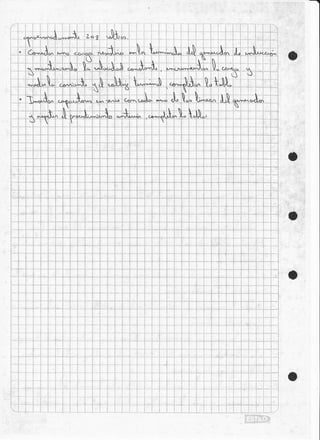 aproximadamente 208 voltios.
• Conectar una carga resistiva en los terminales del generador de inducción
y manteniendo la velocidad constante, incrementar la carga y
medir la corriente y el voltaje terminal, completar la tabla.
• Insertar capacitores en serie con cada una de las líneas del generador
y repetir el procedimiento anterior, completar la tabla.
ESTILO